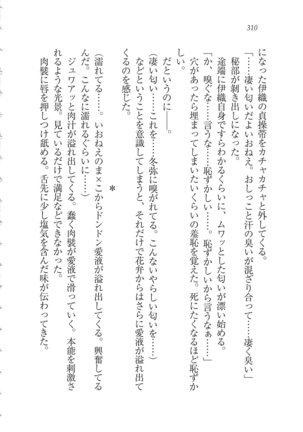 310
伊織の貞操帯をカチャカチャと外してくる。
「……凄い匂いだよいおねえ。おしっこと汗の臭いが混ざり合って……凄く臭い」
秘部が剥き出しになった。
途端に伊織自身ですらわかるくらいに、ムワッとした匂いが漂い始める。
「か、嗅ぐな……言うな……恥ずかしい……恥ずかしいから言うなぁ……」
穴があったら埋まってしまいたいくらいの羞恥を覚えた。死にたくなるほど恥ずか
しい。
だというのに――。
凄い匂い……これを……冬弥に嗅がれてる。こんないやらしい匂いを……
などということを意識してしまうと、それだけで花弁からはさらに愛液が溢れ出て
くるのを感じた。
＊
（濡れてる……。いおねえのま×こからドンドン愛液が溢れ出してくる。興奮してる
んだ。こんなに濡れるぐらいに……）
ジュワアッと肉汁が溢れ出してくる。蠢く肉襞が愛液で滑っていく。本能を刺激さ
れるような光景。見ているだけで満足などできなかった。
肉襞に唇を押しつけ舐める。舌先に少し塩気を含んだ味が伝わってきた。